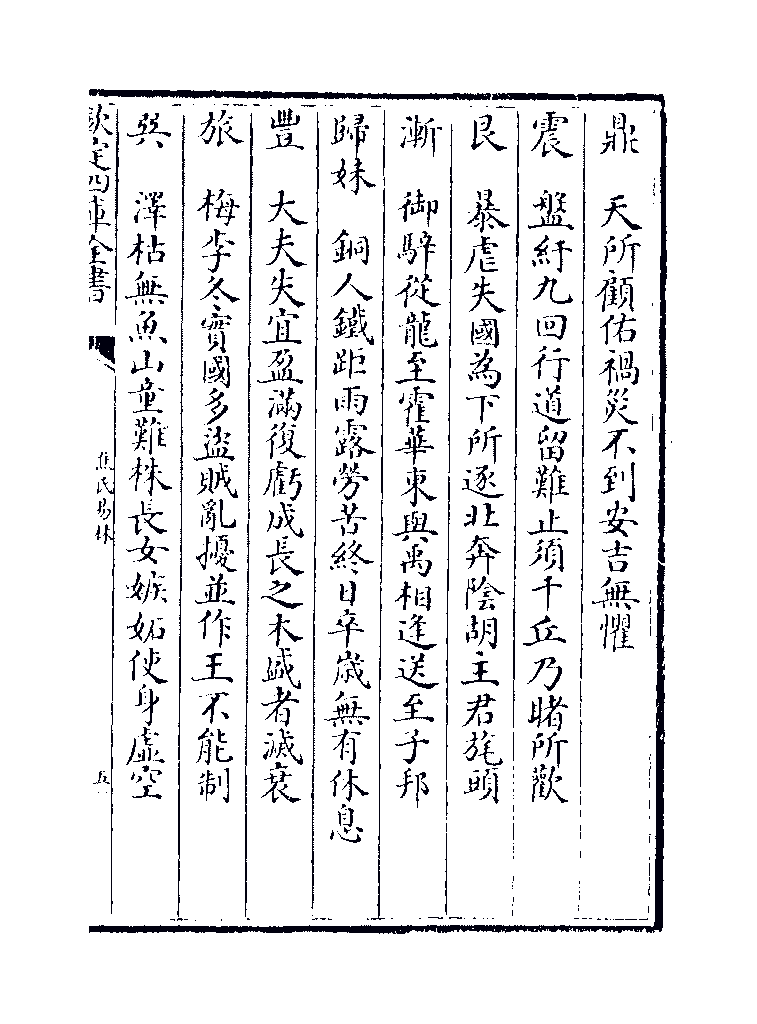 鼎　天所顧佑禍災不到安吉無懼
震　盤紆九回行道留難止須千丘乃睹所歡
艮　暴虐失國為下所逐北奔陰胡主君旄頭
漸　御騂從龍至霍華東與禹相逢送至于邦
歸妹　銅人鐵距雨露勞苦終日卒歲無有休息
豐　大夫失宜盈滿復虧成長之木盛者滅衰
旅　梅李冬實國多盜賊亂擾並作王不能制
巽　澤枯無魚山童難株長女嫉妬使身虛空
欽定四庫全書
焦氏易林
五